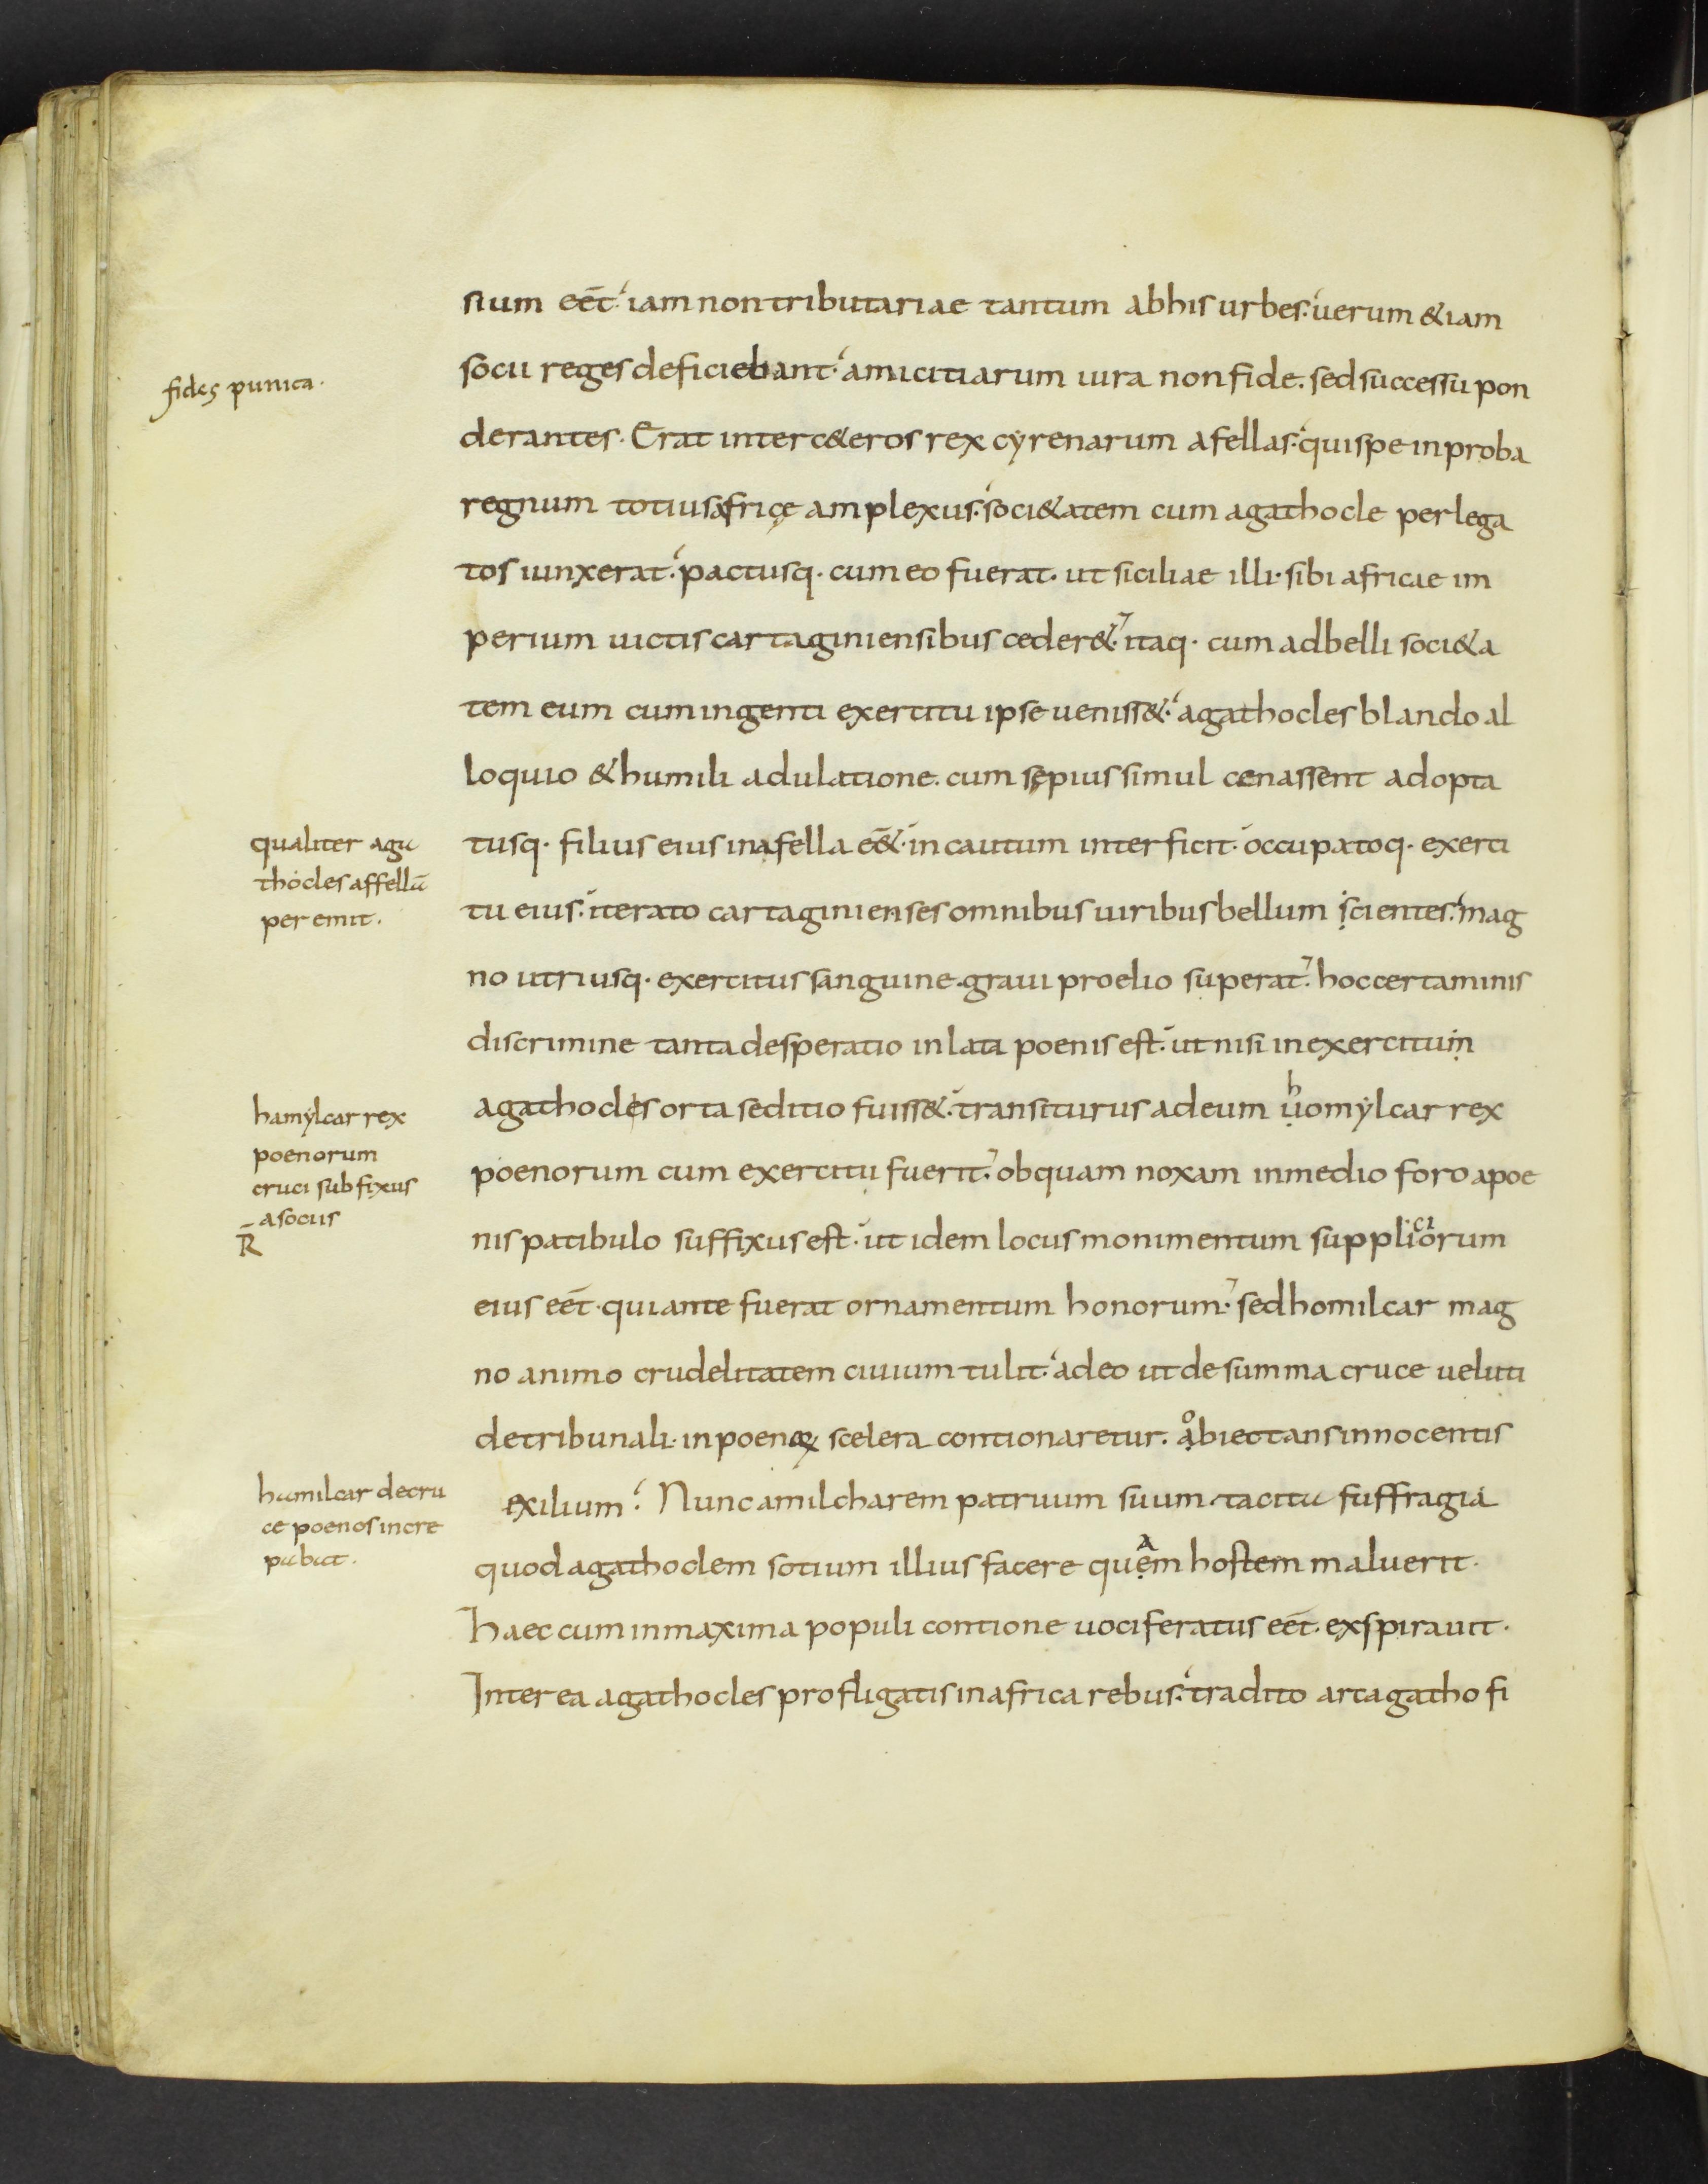 sium eēt iam non tributariae tantum ab his urbes. uerum &iam
socii reges deficiebant. amicitiarum iura non fide. sed successu pon
fides punica.
derantes. Erat inter c&eros rex cyrenarum afellas. quispe inproba
regnum totius africę amplexus. soci&atem cum agathocle per lega
tos iunxerat. pactusq. cum eo fuerat. ut siciliae illi. sibi africae im
perium uictis cartaginiensibus ceder&. itaq. cum ad belli soci&a
tem eum cum ingenti exercitu ipse ueniss&. agathocles blando al
loquio & humili adulatione. cum sępius simul cenassent adopta
tusq. filius eius in afella eē&. incautum interficit. occupatoq. exerci
qualiter aga
thocles affellā
peremit.
tu eius. iterato cartaginienses omnibus uiribus bellum scientes. mag
no utriusq. exercitus sanguine. graui proelio superat. hoc certaminis
discrimine tanta desperatio inlata poenis est. ut nisi in exercituin
agathocles orta seditio fuiss&. transiturus ad eum uhomylcar rex
hamylcar rex
poenorum
cruci subfixus
a sociis
R̄
poenorum cum exercitu fuerit. ob quam noxam in medio foro a poe
nis patibulo suffixus est. ut idem locus monimentum suppliciorum
eius eēt. qui ante fuerat ornamentum honorum. sed homilcar mag
no animo crudelitatem ciuium tulit. adeo ut de summa cruce ueluti
de tribunali. in poenorum scelera contionaretur. aobiectans innocentis
exilium. Nunc amilcharem patruum suum tacita suffragia
hamilcar de cru
ce poenos incre
pabat.
quod agathoclem sotium illius facere queam hostem maluerit.
haec cum in maxima populi contione uociferatus eēt. exspirauit.
Interea agathocles profligatis in africa rebus. tradito arcagatho fi